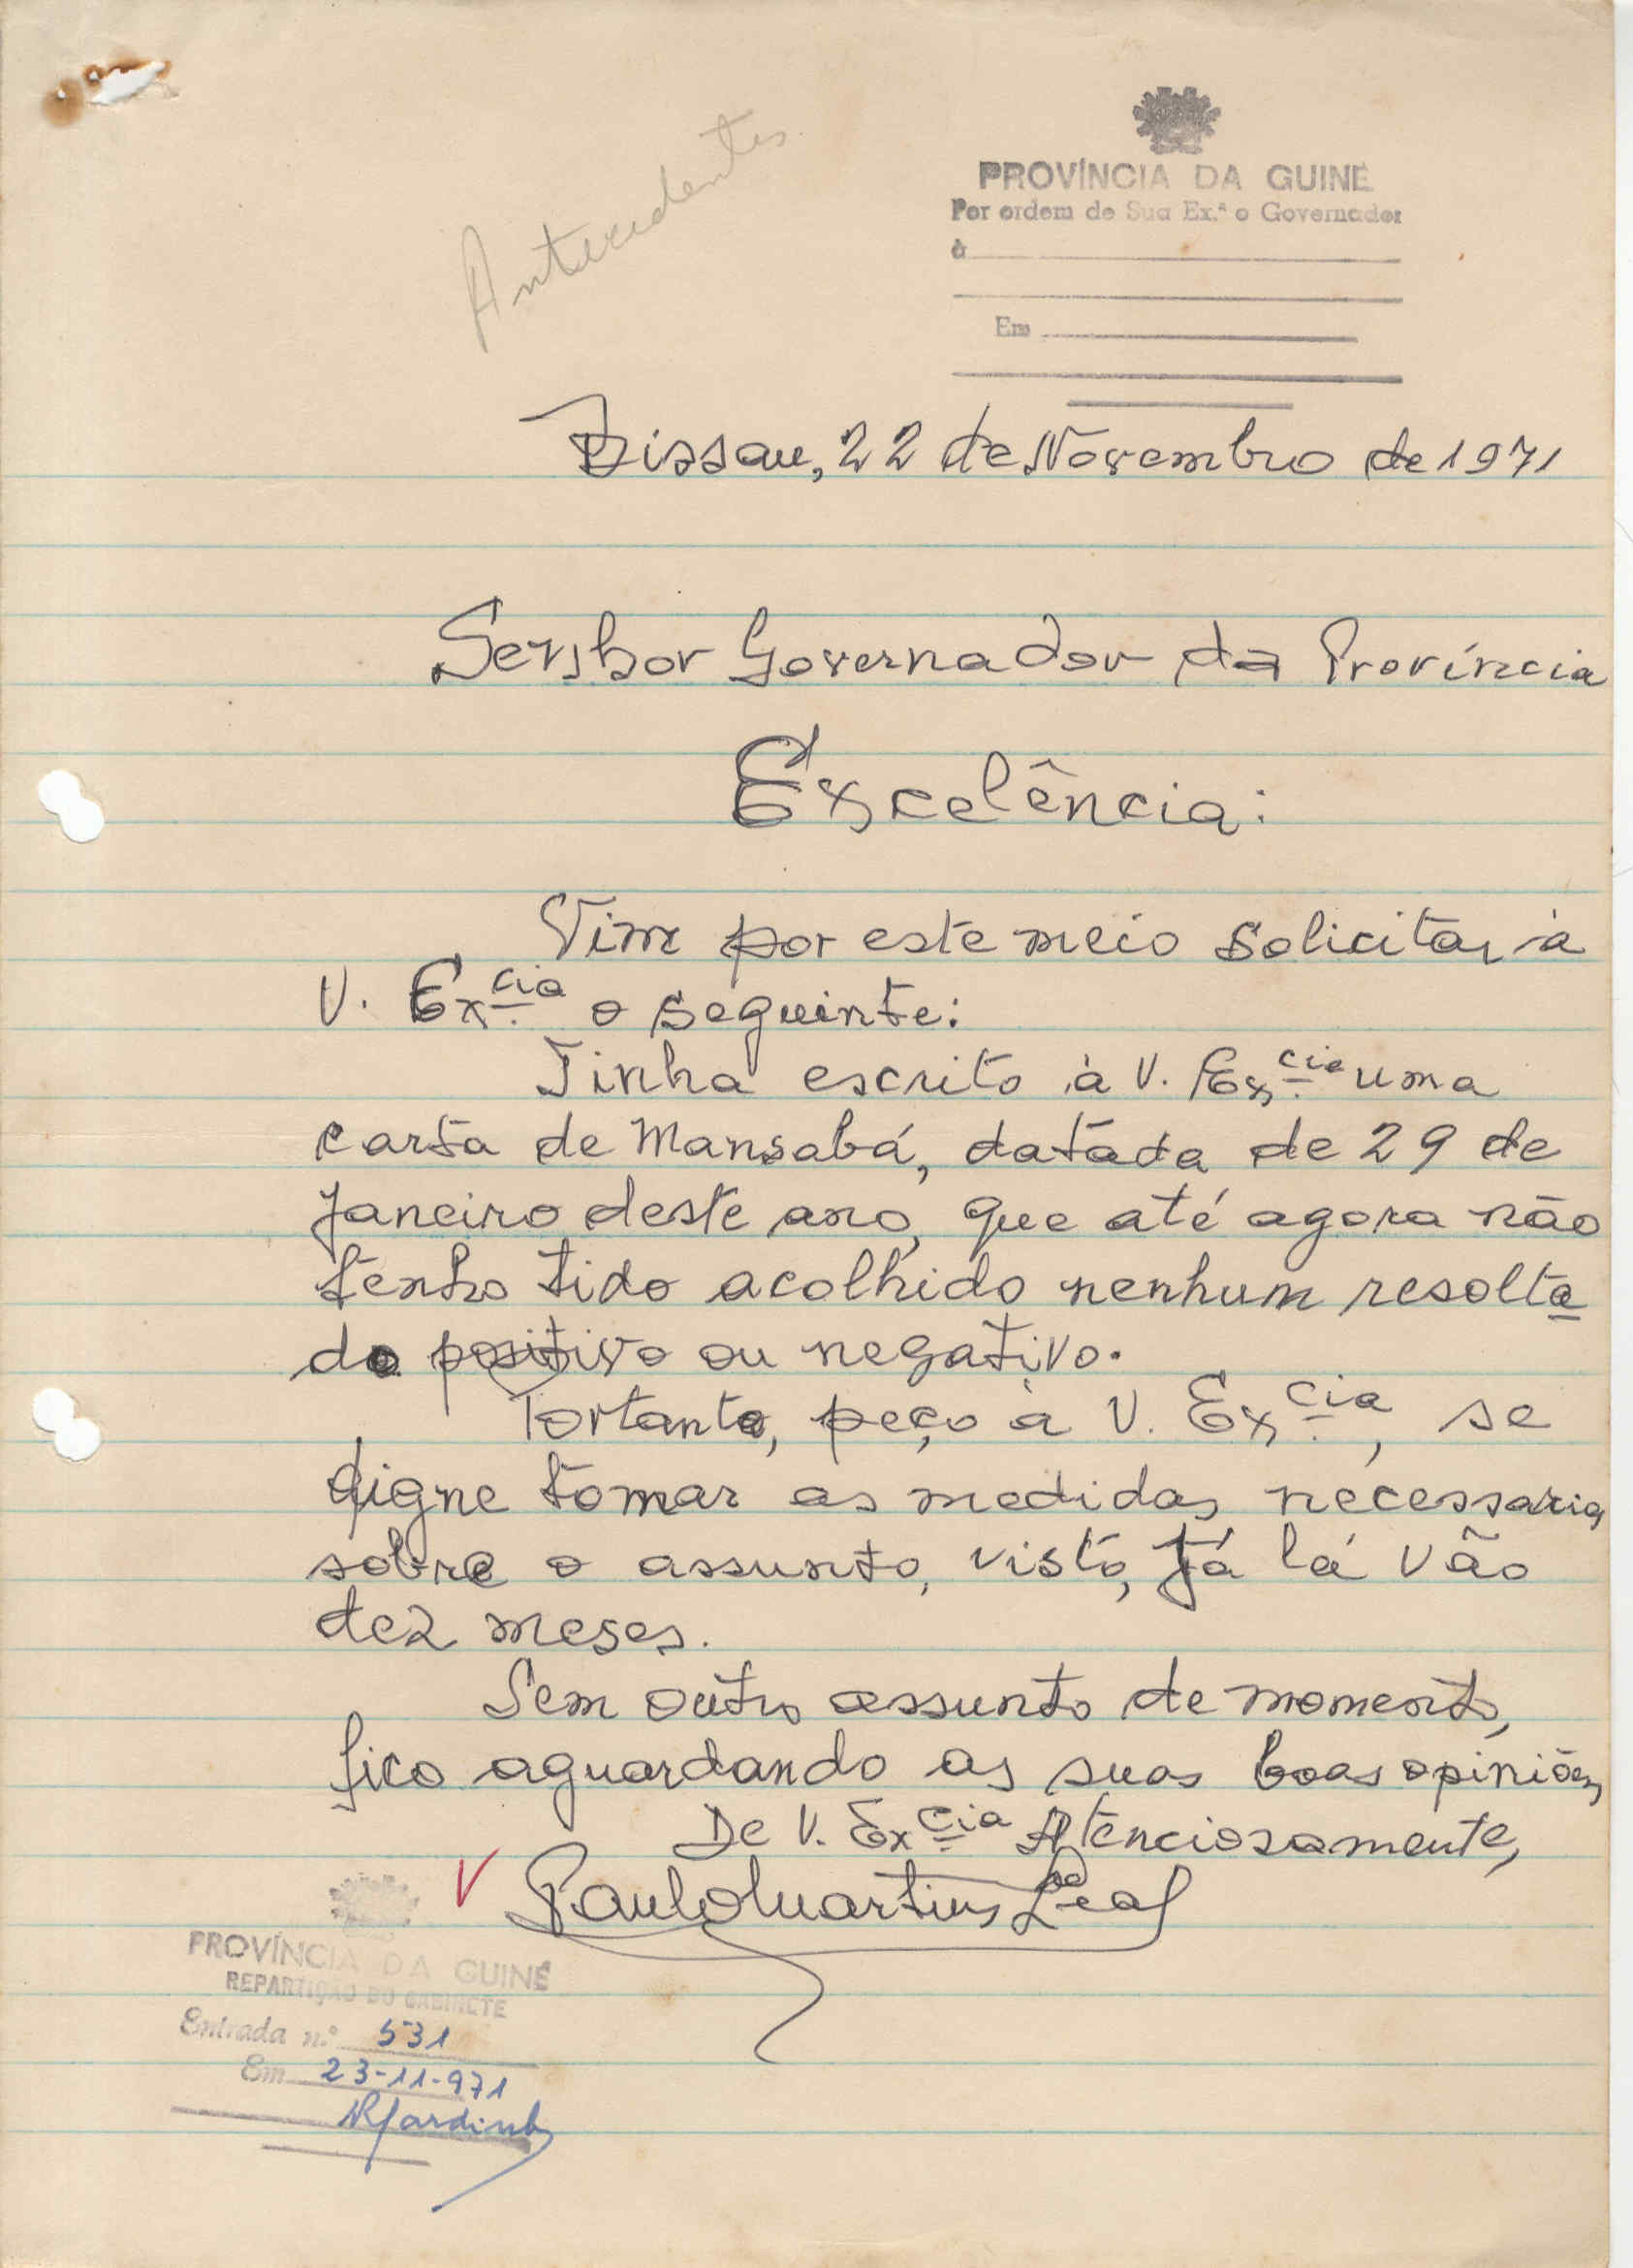 Antecedentes
PROVÍNCIA DA GUINÉ
Por ordem de Sua Ex.ª o Governador
à
Em
Bissau, 22 de Novembro de 1971
Senhor Governador da Província
Excelência:
Vim por este meio solicitar à
V. Ex.cia o seguinte:
Tinha escrito à V. Ex.cia uma
carta de Mansabá, datada de 29 de
Janeiro deste ano, que até agora não
tenho tido acolhido nenhum resolta
do positivo ou negativo.
Portanto, peço à V. Ex.cia, se
digne tomar as medidas necessarias
sobre o assunto, visto, já lá vão
dez meses.
Sem outro assunto de momento,
fico aguardando as suas boas opiniões,
De V. Ex.cia Atenciosamente,
V Paulo Martins Leal
PROVÍNCIA DA GUINÉ
REPARTIÇÃO DO GABINETE
Entrada n.º 531
Em 23-11-971